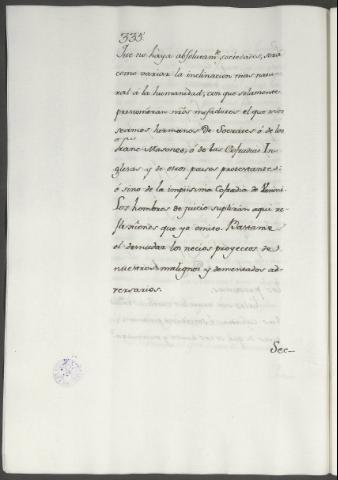 335.
Que no haya absolutam.te sociedades, será
como variar la inclinacion mas natu-
ral á la humanidad; con que solamente
presumirán n̄ros mofadores el que nos
seamos hermanos de Socrates ó de los
franc-Masones, ó de las Cofradias In-
glesas y de otros paises protestantes:
ó sino de la impiisima Cofradia de
Los hombres de juicio suplirán aqui re-
flexîones que yo omito. Bastame
el desnudar los necios proyectos de
nuestros malignos y dementados ad-
versarios.
Sec-